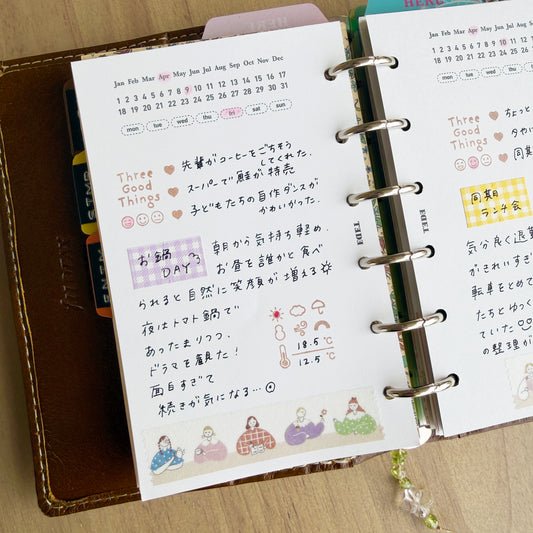 Jan Feb Mar Apr May Jun Jul Aug Sep Oct Nov Dec
1 2 3 4 5 6 7 8 9 10 11 12 13 14 15 16 17
18 19 20 21 22 23 24 25 26 27 28 29 30 31
mon tue wed thu fri sat sun
Three Good Things
先輩がコーヒーをごちそうしてくれた.
スーパーで鮭が特売
子どもたちの自作ダンスがかわいかった.
お鍋
DAY
朝から気持ち軽め.
お昼を誰かと食べ
られると自然に笑顔が増える
夜はトマト鍋で
あったまりつつ、
ドラマを観た!
面白すぎて
続きが気になる…
18.5 ℃
12.5 ℃
TEDI
HERB
Jan Feb Mar Apr May Jun
1 2 3 4 5 6 7 8 9 10
18 19 20 21 22 23 24 25 26
mon tue wed
Three Good Things
ちょっと
同期
同期
ランチ会
気分良く退勤
がきれいすぎ
転車をとめて
たちとゆっく
ていた
の整理が
TEDI